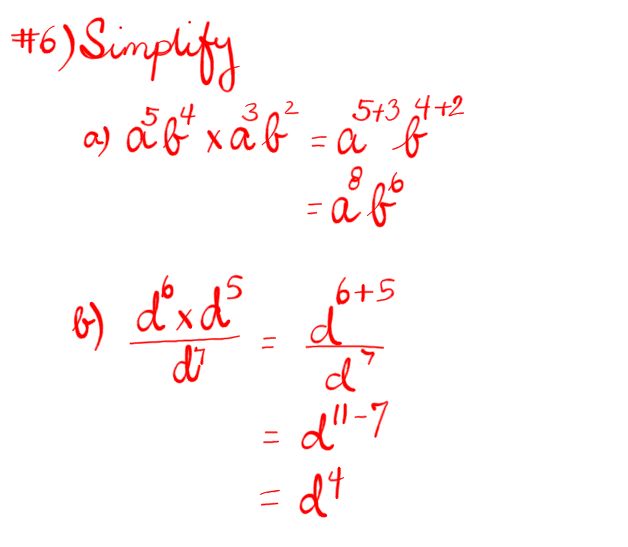 #6) Simplify
a) a⁵b⁴ × a³b² = a⁵⁺³ b⁴⁺²
= a⁸ b⁶
b) (d⁶ × d⁵)/d⁷ = d⁶⁺⁵/d⁷
= d¹¹⁻⁷
= d⁴